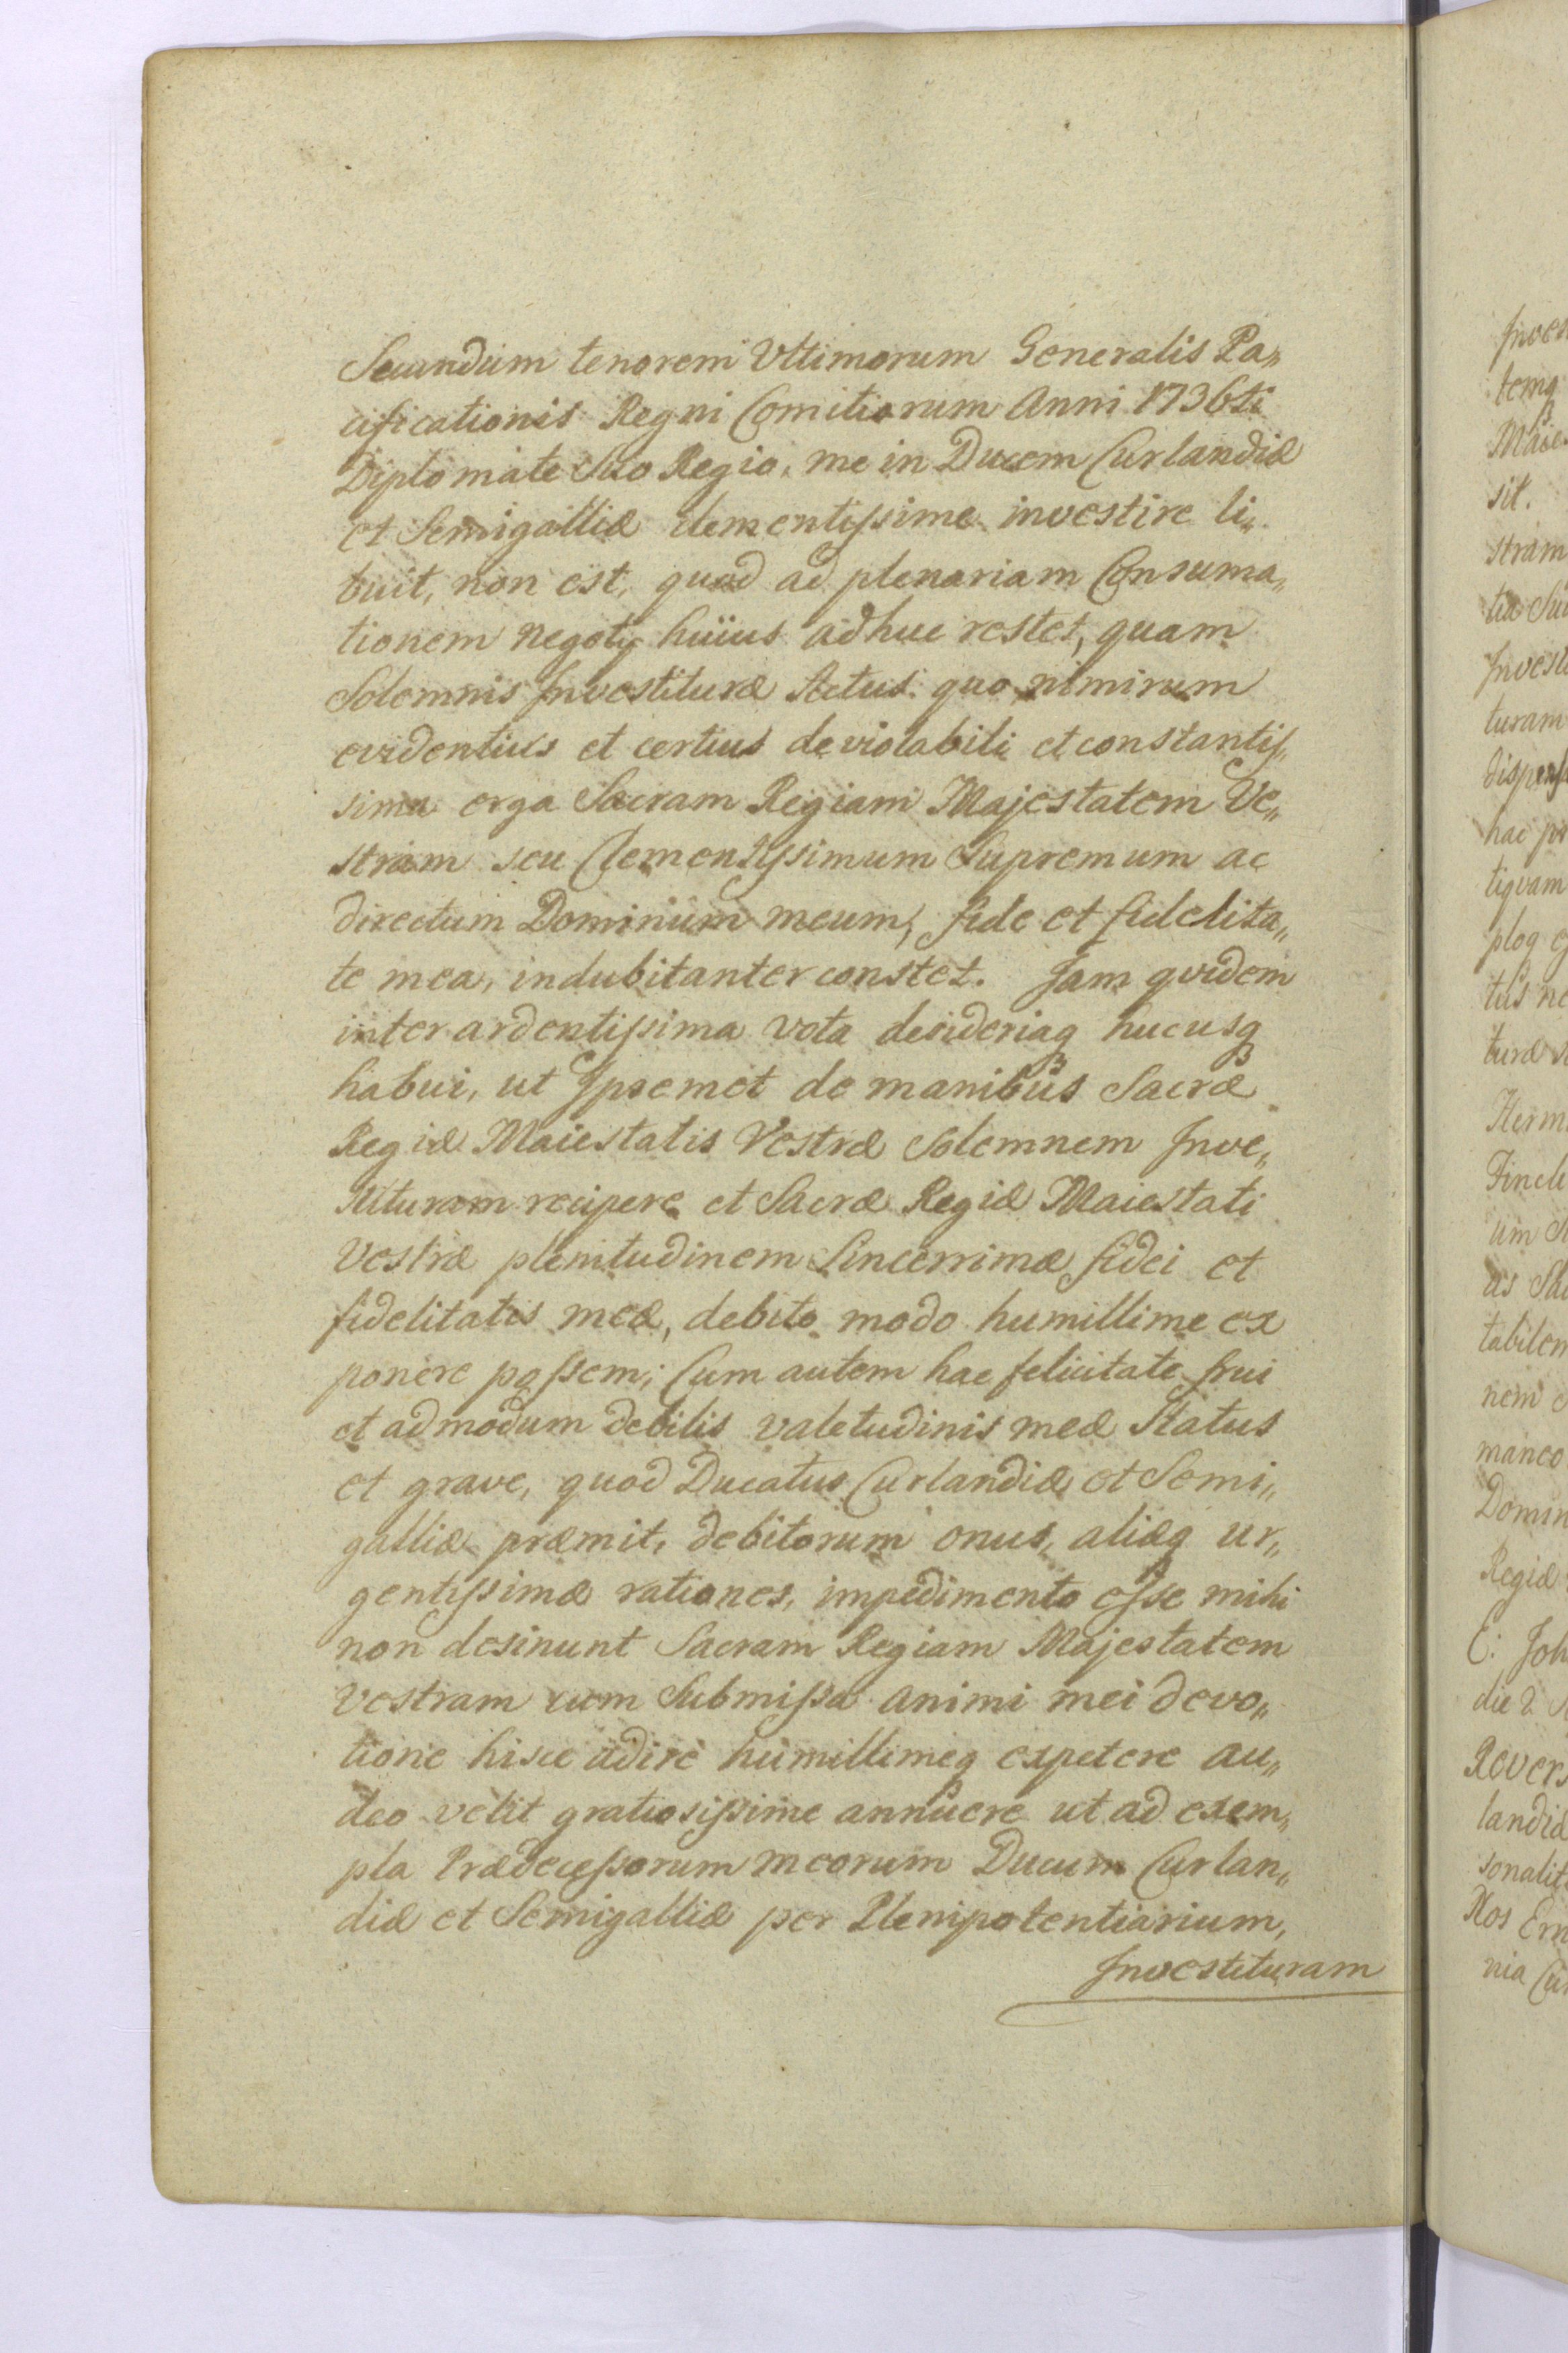 Secundum tenorem Vltimorum Generalis Pa„
cificationis Regni Comitiorum Anni 1736ti
Diplomate Suo Regio, me in Ducem Curlandiæ
et Semigalliæ clementißime investire li„
buit, non est, quod ad plenariam Consuma„
tionem negotij huius adhuc restet, quam
Solemnis Investituræ Actus quo nimirum
evidentius et certius de violabili et constantis„
sima erga Sacram Regiam Majestatem Ve„
stram seu Clementißimum Supremum ac
directum Dominium meum, fide et fidelita„
te mea, indubitanter constet. Jam qvidem
inter ardentißima vota desideriaq hucusq
habui, ut Ipsemet de manibus Sacræ
Regiæ Maiestatis Vestræ Solemnem Inve„
stituram recipere et Sacræ Regiæ Maiestati
Vestræ plenitudinem Sincerrimæ fidei et
fidelitatis meæ, debito modo humillime ex
ponere poßem; Cum autem hac felicitate frui
et admodum debilis valetudinis meæ Status
et grave, quod Ducatus Curlandiæ et Semi„
galliæ præmit, debitorum onus, aliæq ur„
gentißimæ rationes, impedimento eße mihi
non desinunt Sacram Regiam Majestatem
Vestram cum Submißa animi mei devo„
tione hisce adire humillimeq expetere au„
deo velit gratiosißime annuere ut ad exem„
pla Prædeceßorum meorum Ducum Curlan„
diæ et Semigalliæ per Plenipotentiarium,
Investituram
temq
sit.
stram
turam
hac
tiqvam
Regiæ
die 2.
landiæ
Nos
nia